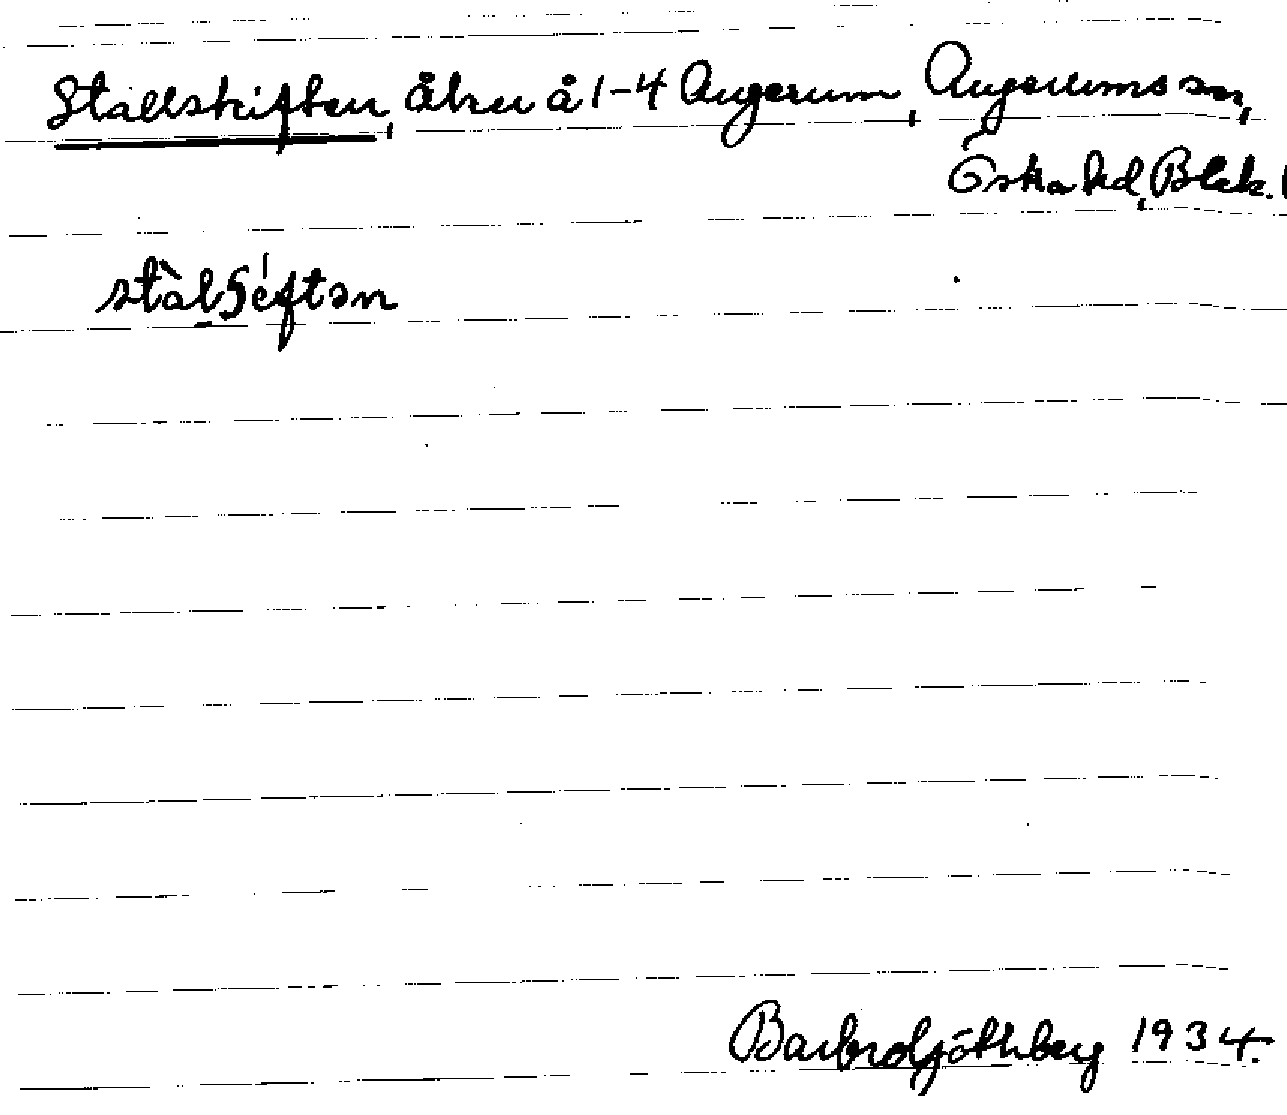 Stallskiften, åker å 1-4 Augerum, Augerums sn,
Östra hd, Blek.
stàlʃéftən
Barbro Göthberg 1934.